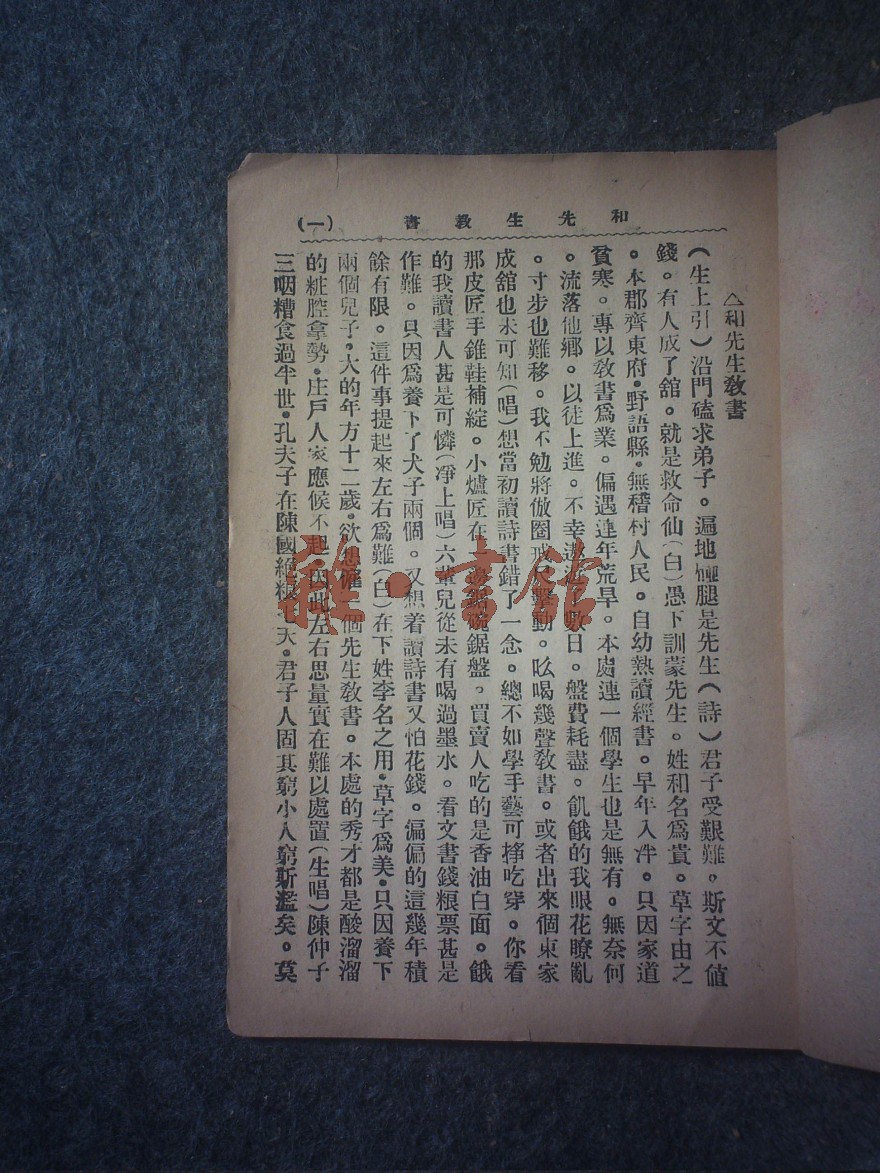 和先生教書 (一)
△和先生教書
(生上引)沿門磕求弟子。遍地 腿是先生(詩)君子受艱難。斯文不值
錢。有人成了舘。就是救命仙(白)愚下訓蒙先生。姓和名爲貴。草字由之
。本郡齊東府。野語縣。無稽村人民。自幼熟讀經書。早年入泮。只因家道
貧寒。專以敎書爲業。偏遇連年荒旱。本處連一個學生也是無有。無奈何
。流落他鄉。以徒上進。不幸遨遊 數日。盤費耗盡。飢餓的我眼花瞭亂
。寸步也難移。我不勉將倣圈戒尺擊動。吆喝幾聲敎書。或者出來個東家
成舘也未可知(唱)想當初讀詩書錯了一念。總不如學手藝可掙吃穿。你看
那皮匠手錐鞋補綻。小爐匠在 鋸碗鋸盤。買賣人吃的是香油白面。餓
的我讀書人甚是可憐(凈上唱)六輩兒從未有喝過墨水。看文書錢粮票甚是
作難。只因爲養下了犬子兩個。又想着讀詩書又怕花錢。偏偏的這幾年積
餘有限。這件事提起來左右爲難(白)在下姓李名之用。草字爲美。只因養下
兩個兒子。大的年方十二歲。欲想僱一個先生敎書。本處的秀才都是酸溜溜
的粧腔拿勢。庄戶人家應候不起。因此左右思量實在難以處置(生唱)陳仲子
三咽糟食過半世。孔夫子在陳國絶粮七天。君子人固其窮小人窮斯濫矣。莫
雜·書館